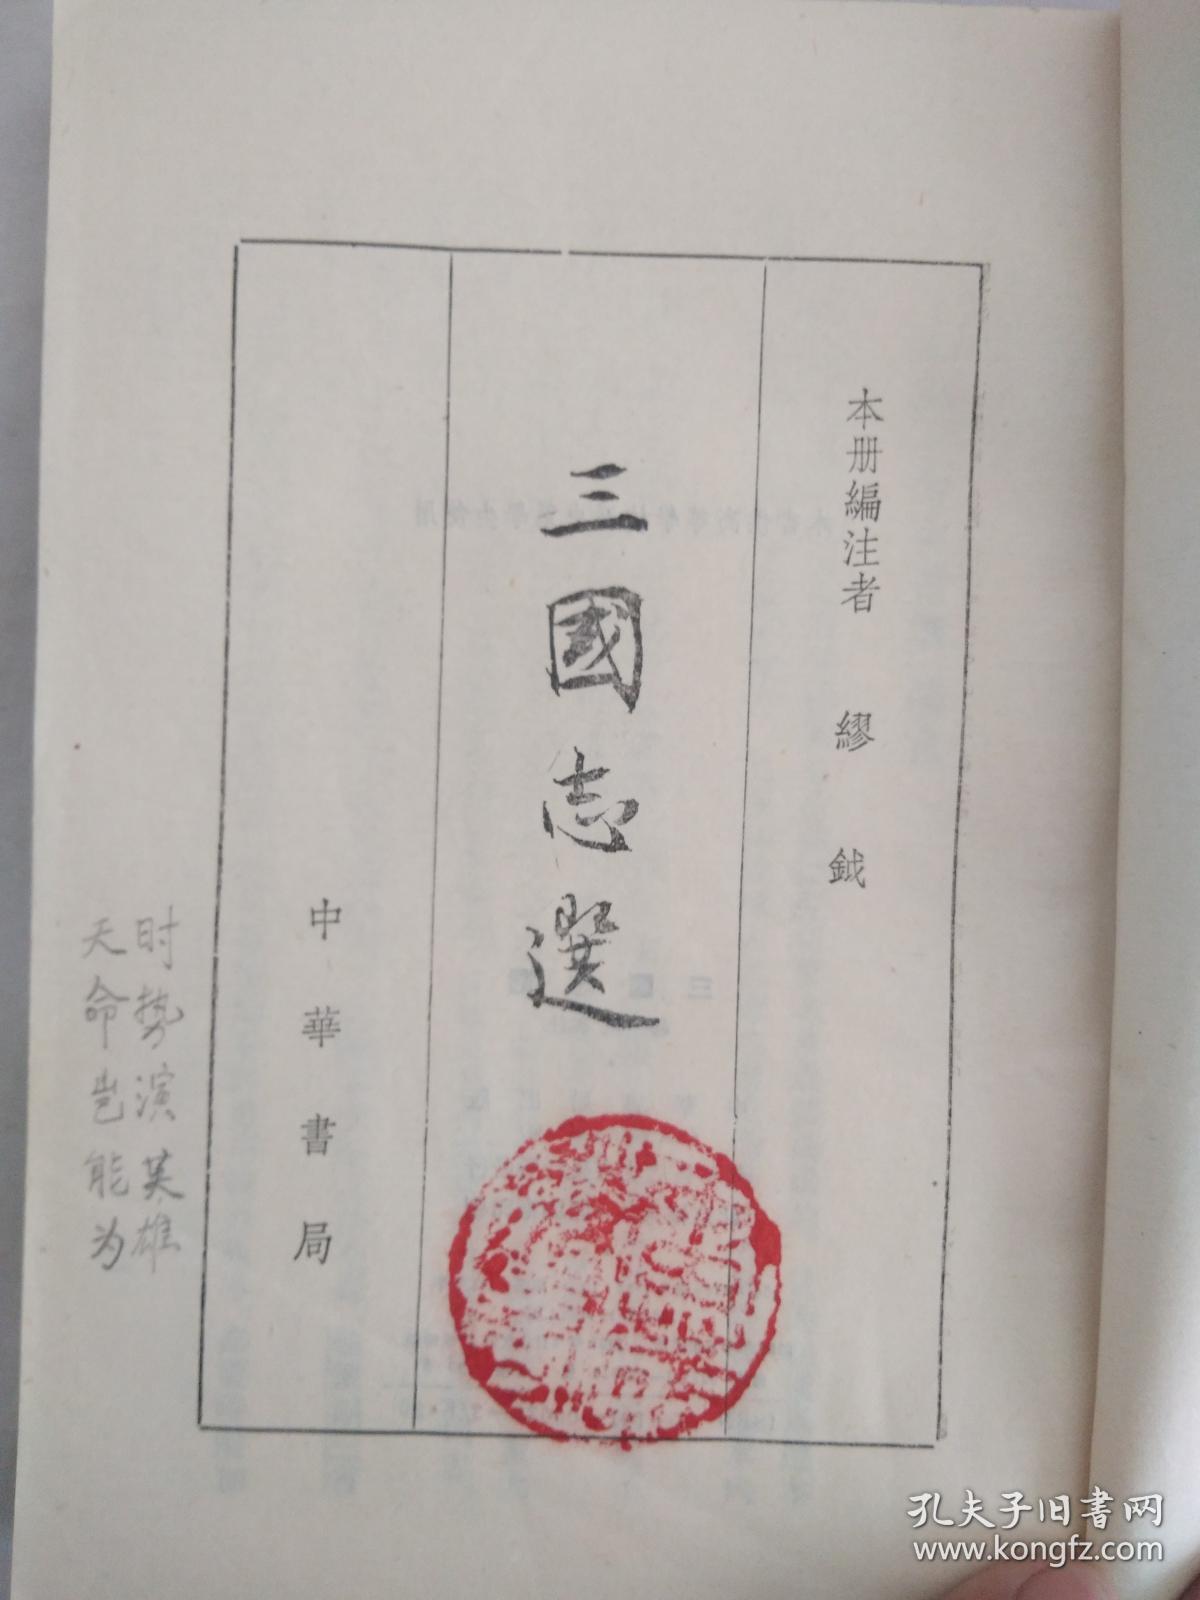 本册編注者 繆鉞
三國志選
中華書局
时势演英雄
天命岂能为
孔夫子旧书网
www.kongfz.com